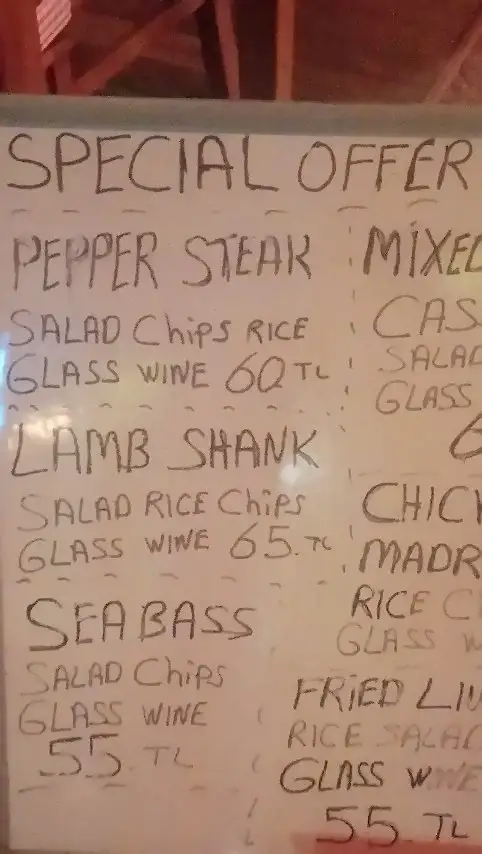 SPECIAL OFFER
PEPPER STEAK
SALAD Chips RICE
GLASS WINE 60 TL
LAMB SHANK
SALAD RICE Chips
GLASS WINE 65. TL
SEABASS
SALAD Chips
GLASS WINE
55 TL
MiXED
CAS
SALAD
GLASS
CHIC
MADR
RICE C
GLASS W
FRiED LIV
RICE SALAD
GLASS WINE
55 TL